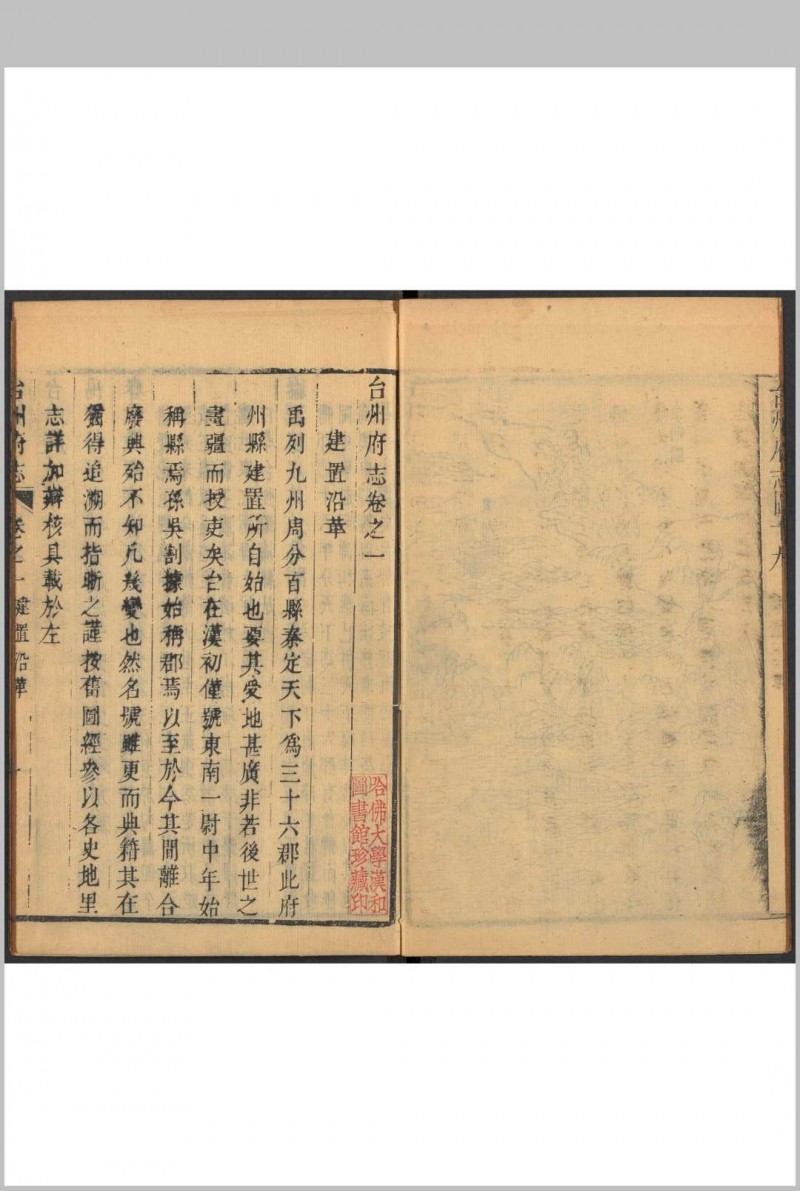 台州府志圖
台州府志卷之一
建置沿革
禹列九州周分百縣秦定天下爲三十六郡此府
州縣建置所自始也要其爰地甚廣非若後世之
畫疆而授吏矣台在漢初僅號東南一尉中年始
稱縣焉孫吳割據始稱郡焉以至於今其間離合
廢興殆不知凡幾變也然名號雖更而典籍其在
猶得追溯而指晰之謹按舊圖經參以各史地里
志詳加辯核具載於左
台州府志 卷之一 建置沿革 一
哈佛大學漢和
圖書館珍藏印